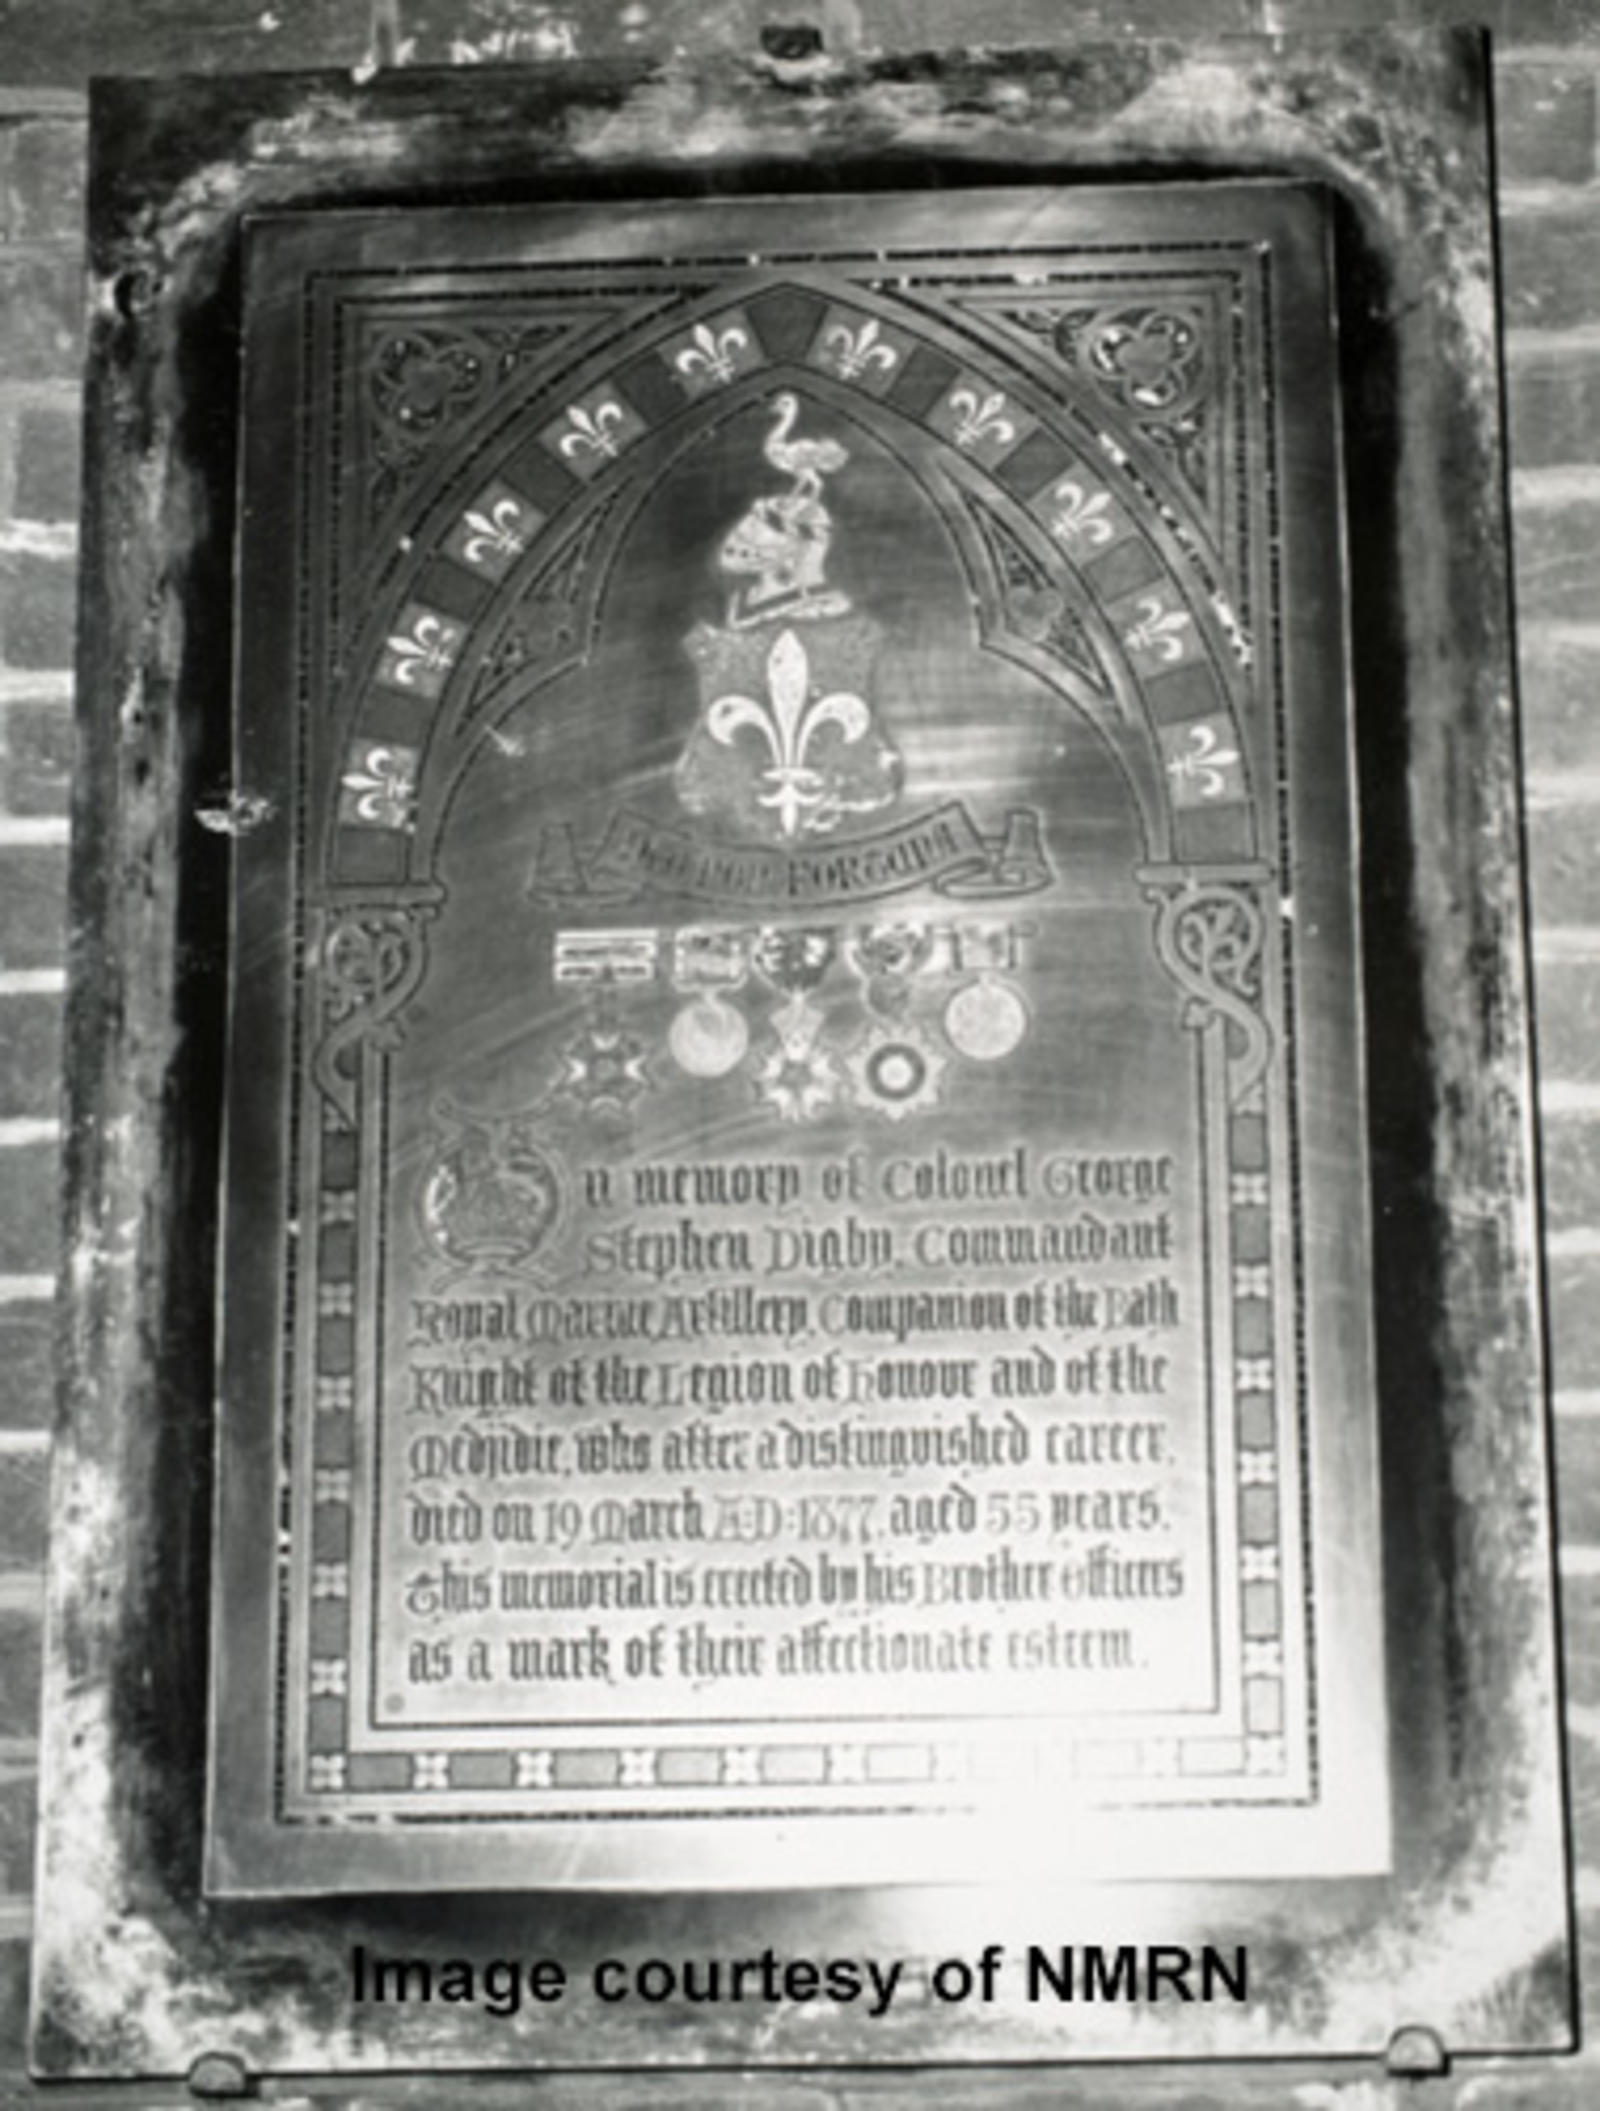 DEO NON FORTUNA
In memory of Colonel George
Stephen Digby, Commandant
Royal Marine Artillery, Companion of the Bath
Knight of the Legion of Honour and of the
Medjidie, who after a distinguished career,
died on 19 March A:D:1877, aged 55 years.
This memorial is erected by his Brother Officers
as a mark of their affectionate esteem.
Image courtesy of NMRN